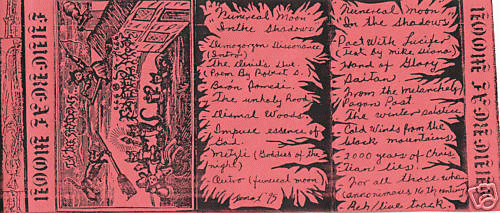 FUNEREAL MOON
"Funereal Moon"
In the Shadows
Demogorgon Dissonance
(Intro)
The Devil's Due
(Poem By Robert S.
Baron Samedi
The unholy Rood
Dismal Woods
Impure essence of
God
Mitzli (Goddess of the
night)
Outro (funereal moon)
Funereal Moon
In the Shadows
Pact With Lucifer
(text by Mike Diana)
Hand of Glory
Saitan
From the Melancholy
Pagans Past
The winter solstice
Cold Winds from the
black mountains
2000 years of Chris
tian lies
For all those who
(anonimous 16 th century)
Reh/live track
FUNEREAL MOON